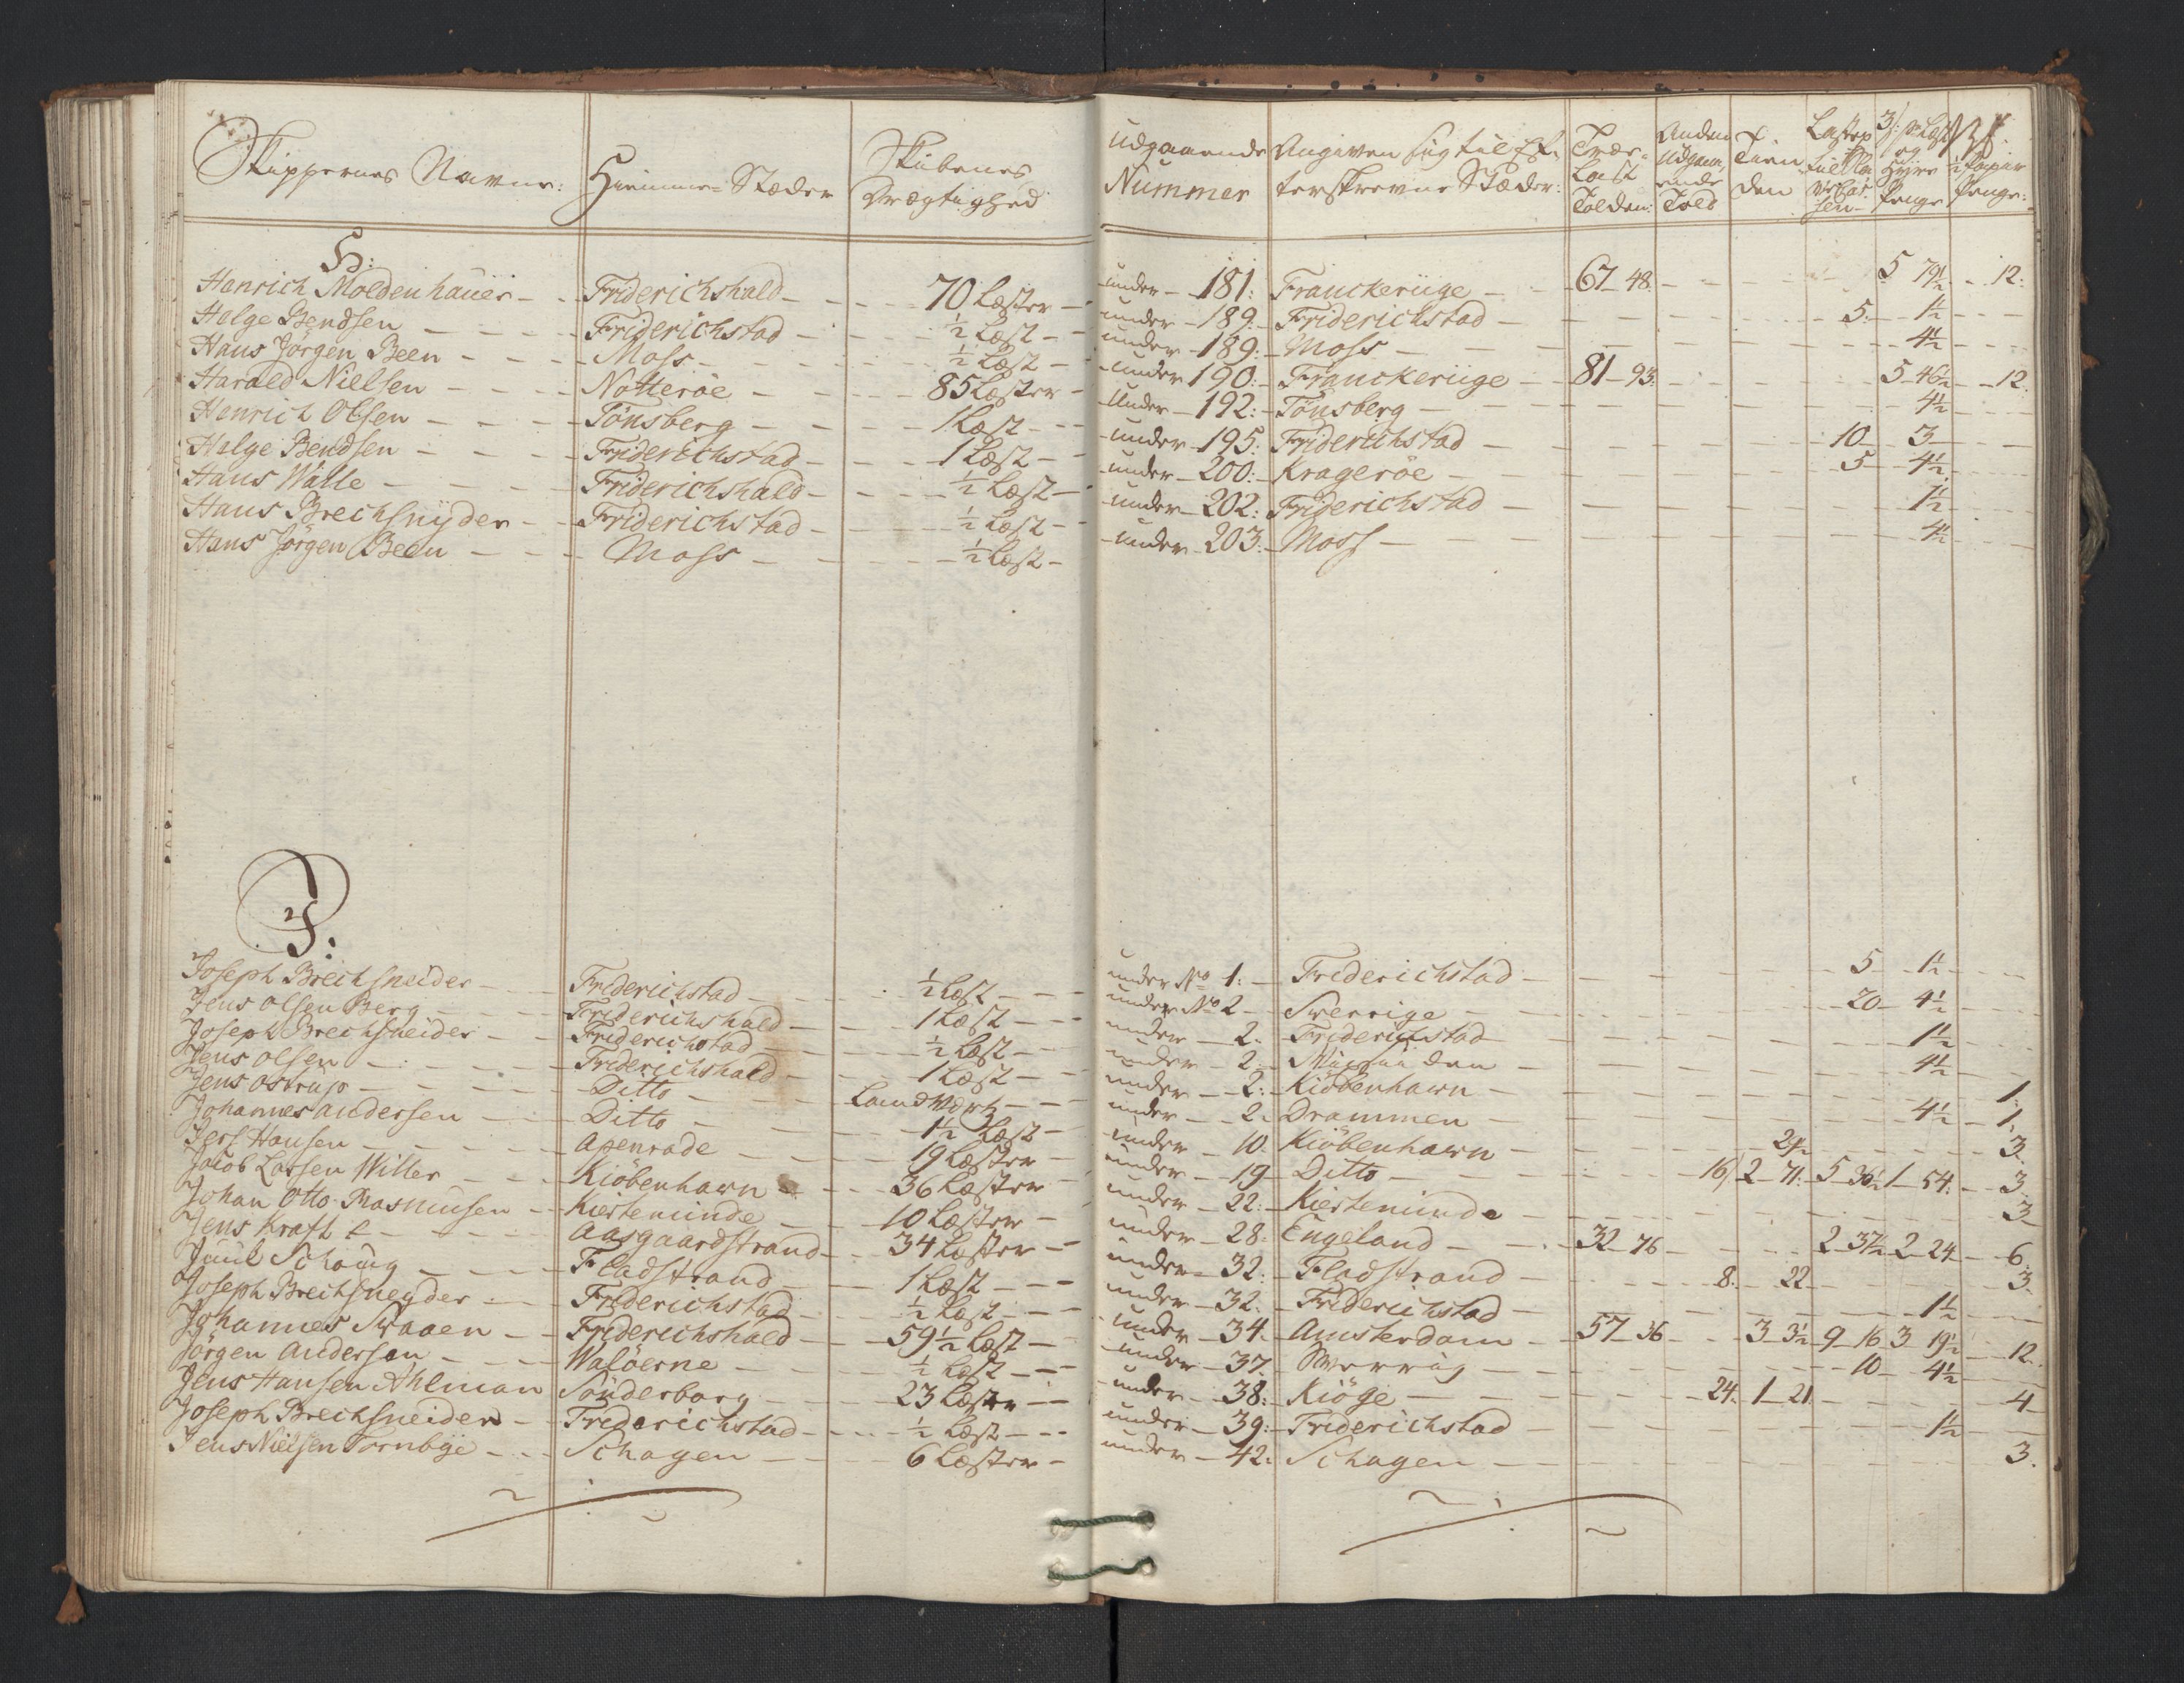 Skippernes Navne: Hiemme-Stæder Skibenes Drægtighed Udgaaende Nummer Angiven sig til Ef-terskrevne Stæder: Træe-Last Tolden: Anden Udgaaende Told Tienden
H:
Henrich Moldenhauer Friderichshald 70 Læster under 181: Franckeriige 67 48. 5 79½ 12:
Helge Bendsen Friderichstad ½ Læst under 189: Friderichstad 5. 1½
Hans Jørgen Been Moss ½ Læst under 189: Moss 4½
Harald Nielsen Nøtterøe 85 Læster under 190: Franckeriige 81 93. 5 46½ 12.
Henrich Olsen Tønsberg 1 Læst under 192: Tønsberg 4½
Helge Bendsen Friderichstad 1 Læst under 195: Friderichstad 10 3
Hans Walle Friderichshald ½ Læst under 200: Kragerøe 5 4½
Hans Brechsnÿder Friderichstad ½ Læst under 202: Friderichstad 1½
Hans Jørgen Been Moss ½ Læst under 203: Moss 4½
J:
Joseph Breichsneider Friderichstad ½ Læst under No 1: Friderichstad 5 1½
Jens Olsen Berg Friderichshald 1 Læst under No 2 Sverrige 20 4½
Joseph Brechsneider Friderichstad ½ Læst under 2. Friderichstad 1½
Jens Olsen Friderichshald 1 Læst under 2. 4½
Jens Ostrup Ditto Landværtz under 2: Kiøbenhavn 1.
Johannes Andersen Ditto 1½ Læst under 2. Drammen 4½ 1.
Hansen Apenrade 19 Læster under 10. Kiøbenhavn 24 3.
Jacob Larsen Willer Kiøbenhavn 36 Læster under 19 Ditto 16 2 71. 5 36½ 1 54. 3.
Johan Otto Rasmusen Kierteminde 10 Læster under 22: Kierteminde 3
Jens Kraft Aasgaardstrand 34 Læster under 28: Engeland 32 76 2 37½ 2 24 6.
Juul Schoug Fladstrand 1 Læst under 32: Fladstrand 8. 22 3.
Joseph Breitsneyder Friderichstad ½ Læst under 32. Friderichstad 1½
Johannes Svaaen Friderichshald 59½ Læst under 34. Amsterdam 57 36 3 3½ 9 16 3 19½ 12
Jørgen Andersen Waløerne ½ Læst under 37. Sverrig 10 4½
Jens Hansen Ahlman Sønderborg 23 Læster under 38: Kiøge 24. 1 21. 4
Joseph Brechsneider Friderichstad ½ Læst under 39: Friderichstad 1½
Jens Nielsen Tornbÿe Schagen 6 Læster under 42: Schagen 3.